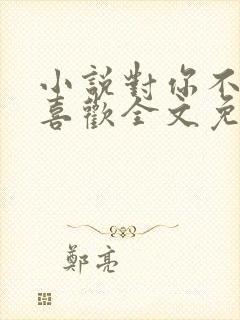 小説對你不
喜歡全文免
鄭亮